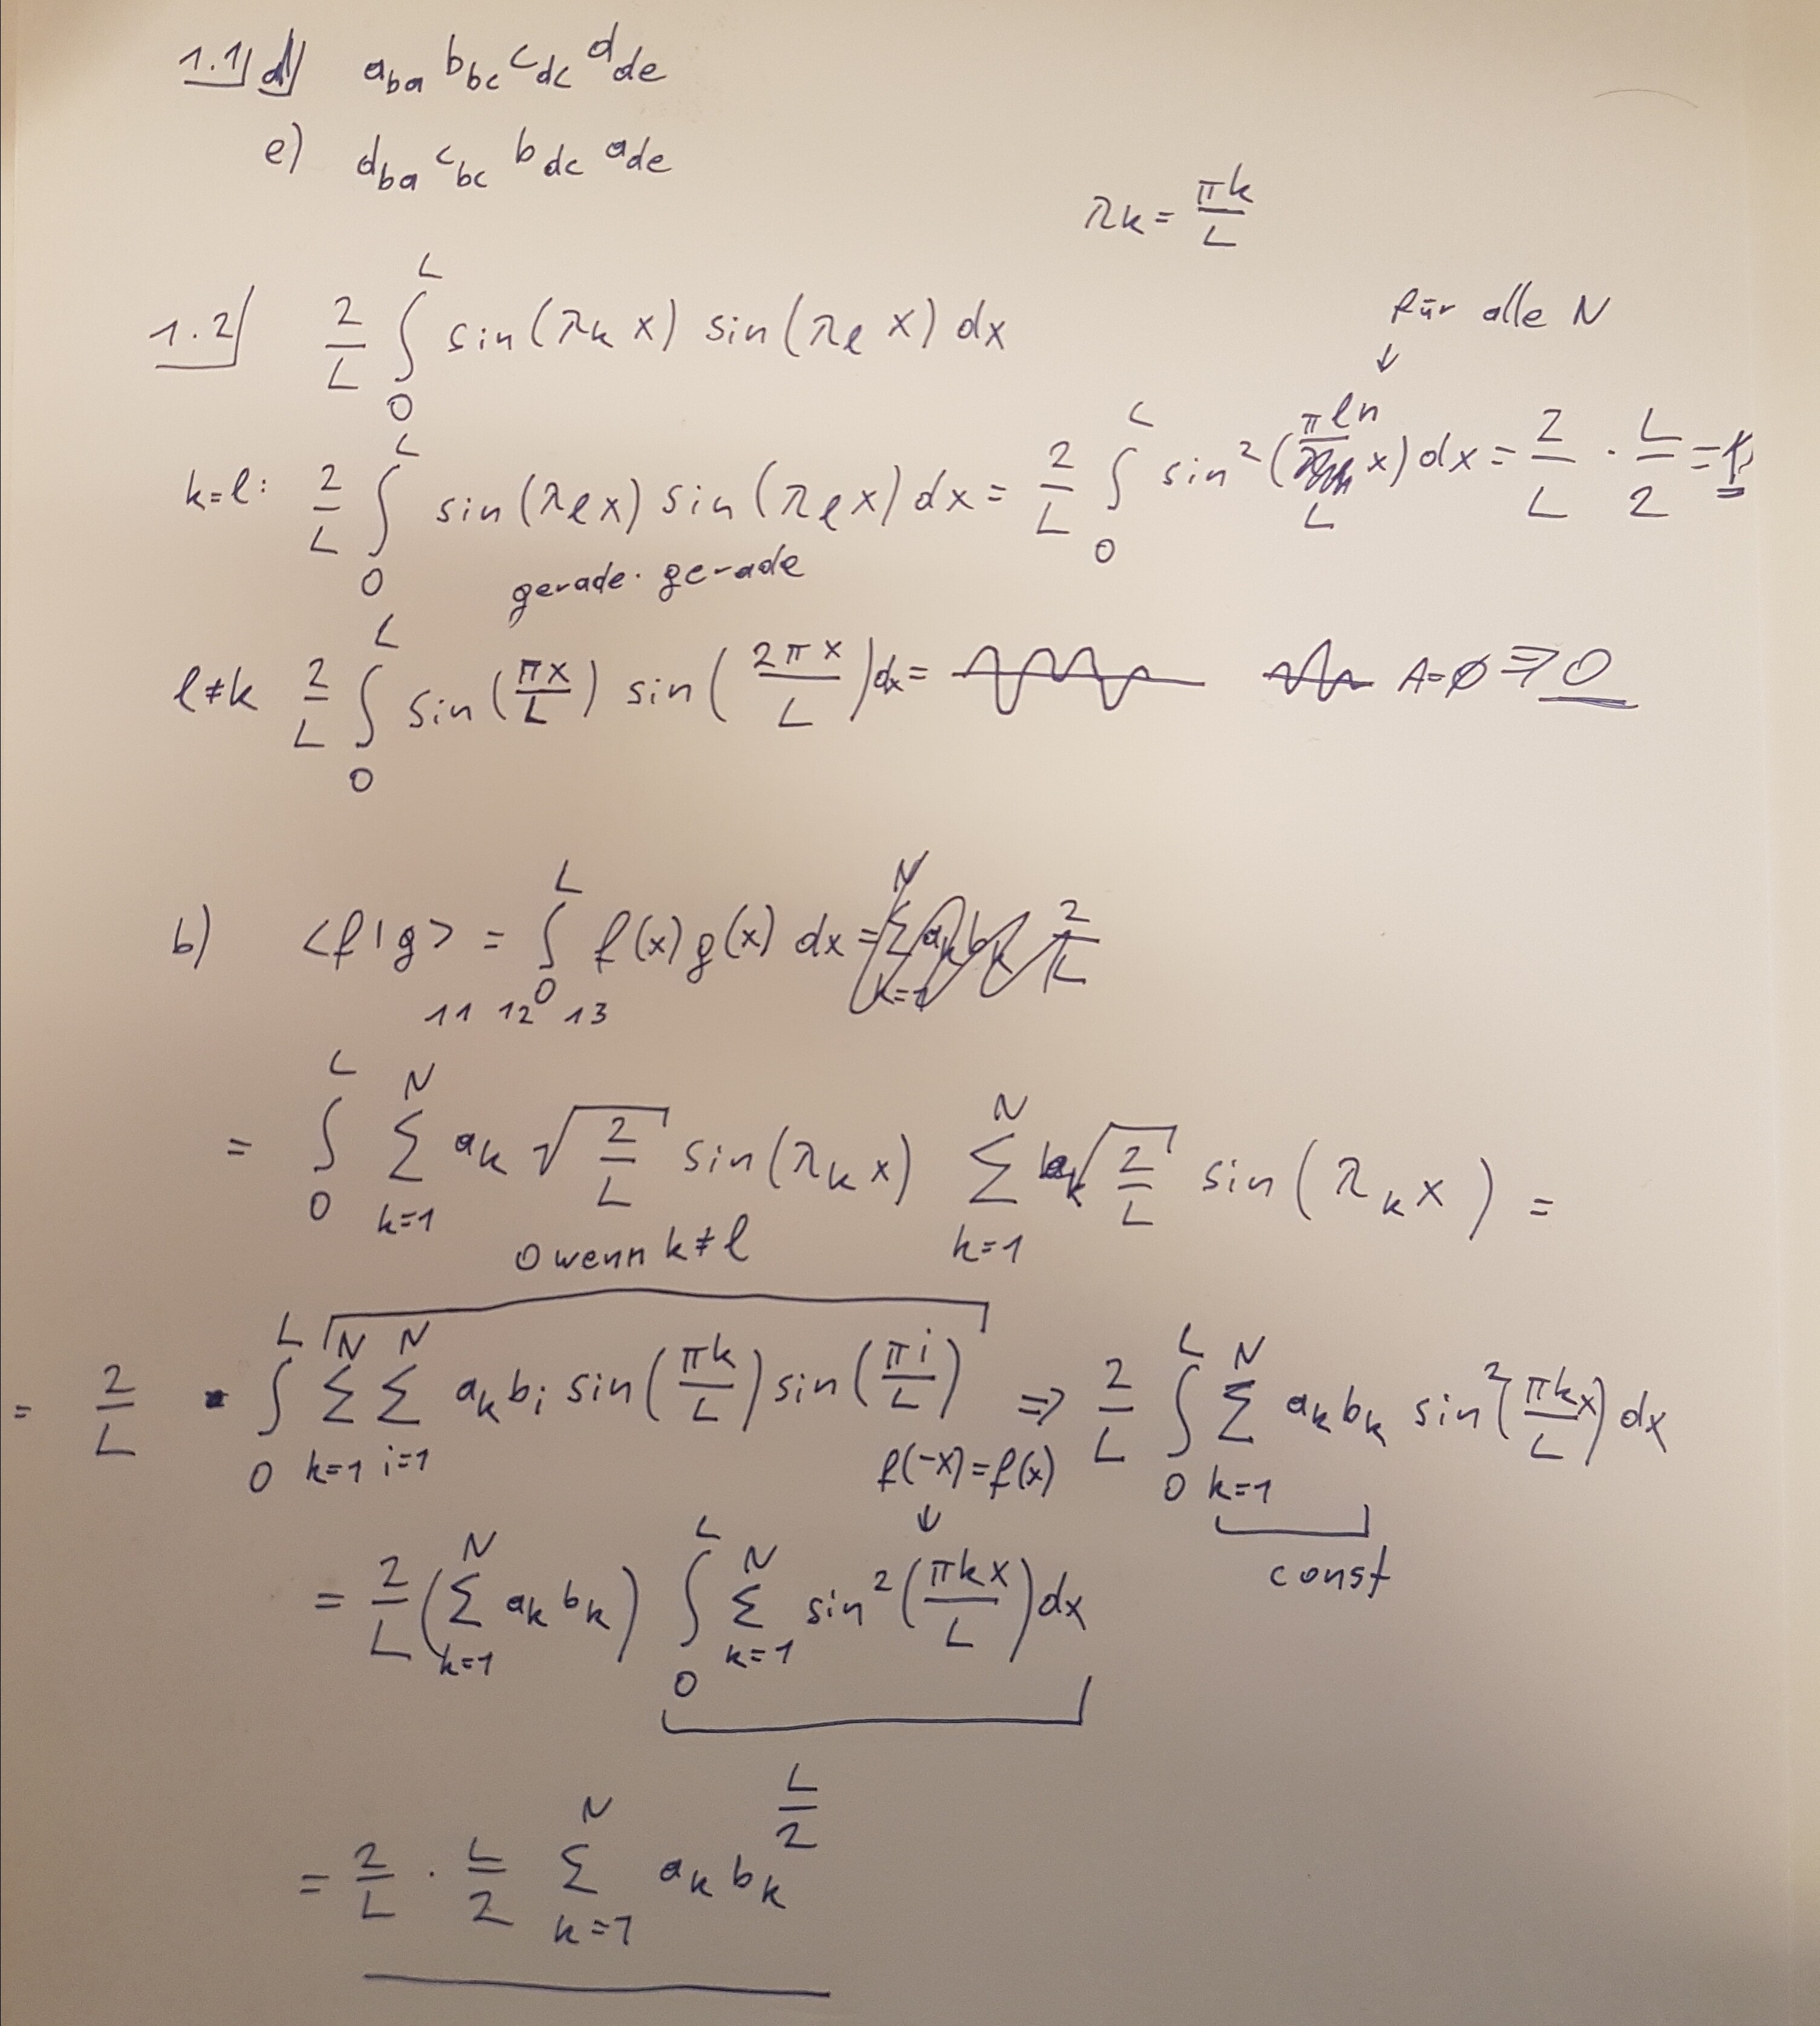 1.1) d) a_ba b_bc c_dc d_de
e) d_ba c_bc b_dc a_de
λk = πk/L
1.2) 2/L ∫_0^L sin(λ_k x) sin(λ_l x) dx
für alle N
↓
k=l: 2/L ∫_0^L sin(λ_l x) sin(λ_l x) dx = 2/L ∫_0^L sin²(πln/L x) dx = 2/L · L/2 = 1
gerade · gerade
l≠k 2/L ∫_0^L sin(πx/L) sin(2πx/L) dx = A=∅ ⇒ 0
b) <f|g> = ∫_0^L f(x) g(x) dx = Σ_{k=1}^N a_k b_k 2/L
11 12 13
= ∫_0^L Σ_{k=1}^N a_k √(2/L) sin(λ_k x) Σ_{k=1}^N b_k √(2/L) sin(λ_k x) =
0 wenn k≠l
= 2/L · ∫_0^L Σ_{k=1}^N Σ_{i=1}^N a_k b_i sin(πk/L) sin(πi/L) ⇒ 2/L ∫_0^L Σ_{k=1}^N a_k b_k sin²(πkx/L) dx
f(-x)=f(x)
↓
const
= 2/L (Σ_{k=1}^N a_k b_k) ∫_0^L Σ_{k=1}^N sin²(πkx/L) dx
L/2
= 2/L · L/2 Σ_{k=1}^N a_k b_k